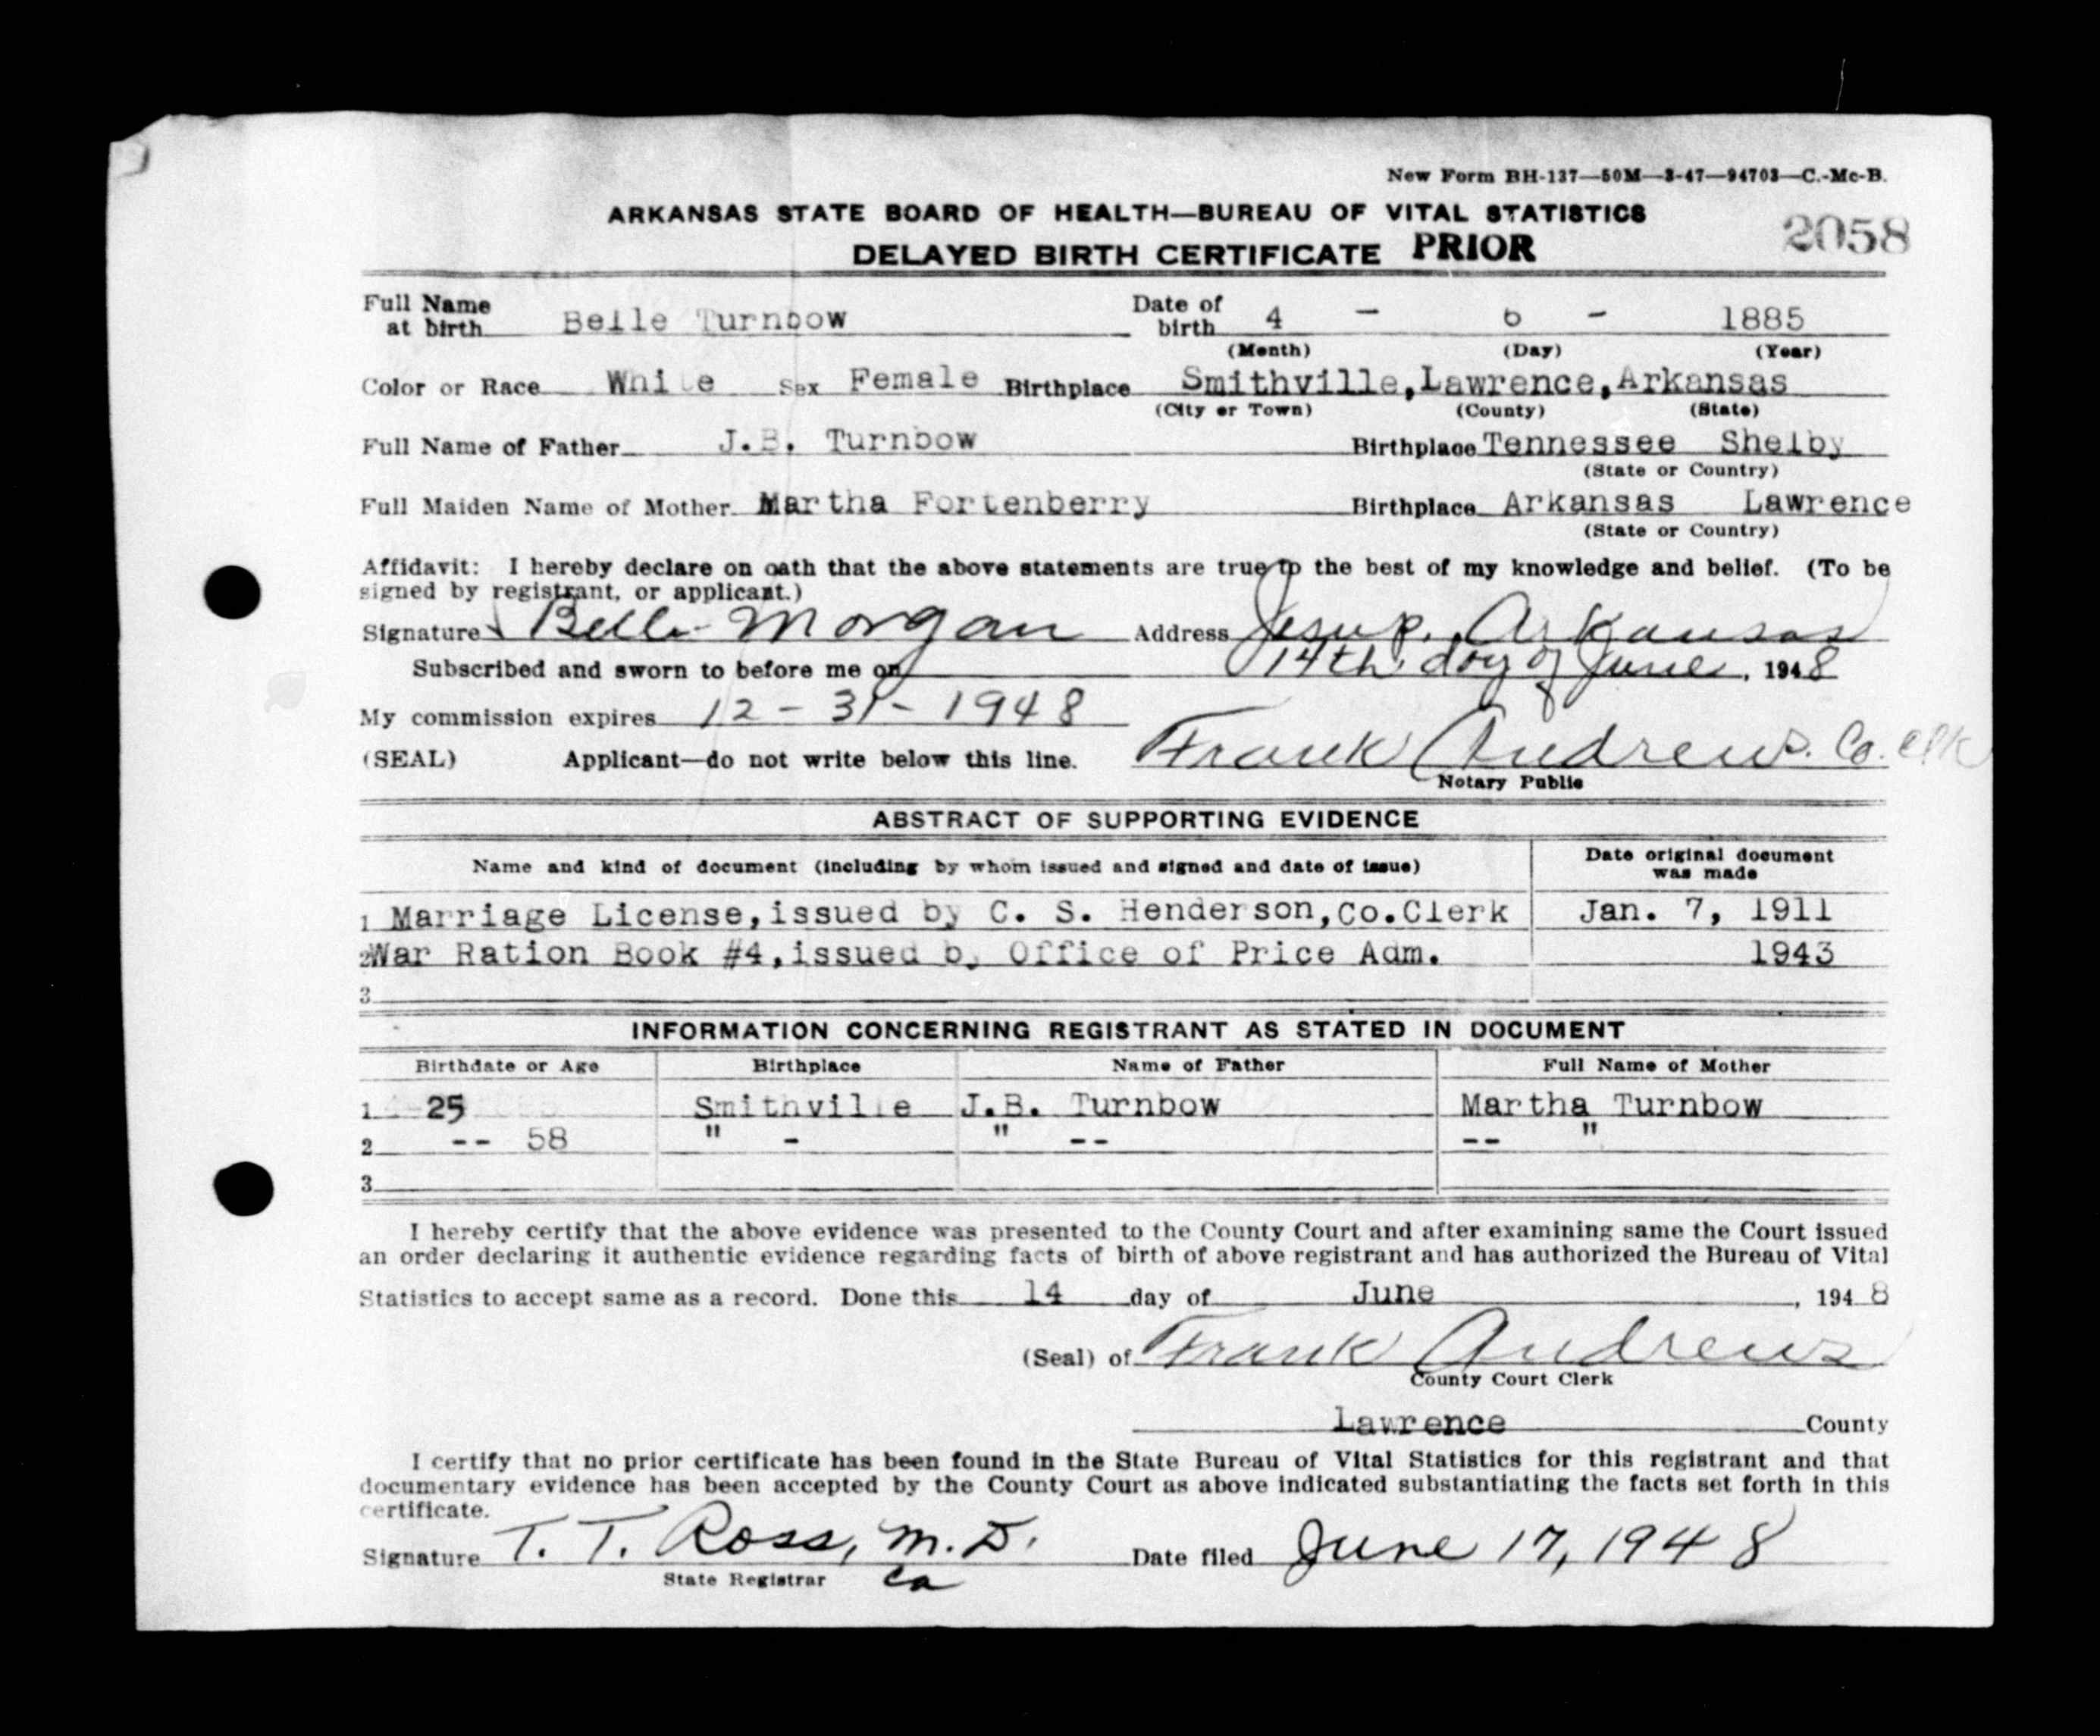 New Form BH-137—50M—3-47—94703—C.-Mc-B.
ARKANSAS STATE BOARD OF HEALTH—BUREAU OF VITAL STATISTICS
DELAYED BIRTH CERTIFICATE PRIOR 2058
Full Name at birth Belle Turnbow Date of birth 4 - 6 - 1885
(Month) (Day) (Year)
Color or Race White Sex Female Birthplace Smithville, Lawrence, Arkansas
(City or Town) (County) (State)
Full Name of Father J.B. Turnbow Birthplace Tennessee Shelby
(State or Country)
Full Maiden Name of Mother Martha Fortenberry Birthplace Arkansas Lawrence
(State or Country)
Affidavit: I hereby declare on oath that the above statements are true to the best of my knowledge and belief. (To be
signed by registrant, or applicant.)
Signature Belle Morgan Address Jesup, Arkansas
Subscribed and sworn to before me on 14th day of June, 1948
My commission expires 12-31-1948
(SEAL) Applicant—do not write below this line. Frank Andrews. Co. Clk
Notary Public
ABSTRACT OF SUPPORTING EVIDENCE
Name and kind of document (including by whom issued and signed and date of issue) Date original document was made
1 Marriage License, issued by C. S. Henderson, Co.Clerk Jan. 7, 1911
2 War Ration Book #4, issued by Office of Price Adm. 1943
3
INFORMATION CONCERNING REGISTRANT AS STATED IN DOCUMENT
Birthdate or Age Birthplace Name of Father Full Name of Mother
1 25 Smithville J.B. Turnbow Martha Turnbow
2 -- 58 " - " -- -- "
3
I hereby certify that the above evidence was presented to the County Court and after examining same the Court issued
an order declaring it authentic evidence regarding facts of birth of above registrant and has authorized the Bureau of Vital
Statistics to accept same as a record. Done this 14 day of June, 1948
(Seal) of Frank Andrews
County Court Clerk
Lawrence County
I certify that no prior certificate has been found in the State Bureau of Vital Statistics for this registrant and that
documentary evidence has been accepted by the County Court as above indicated substantiating the facts set forth in this
certificate.
Signature T. T. Ross, M.D. Date filed June 17, 1948
State Registrar ca